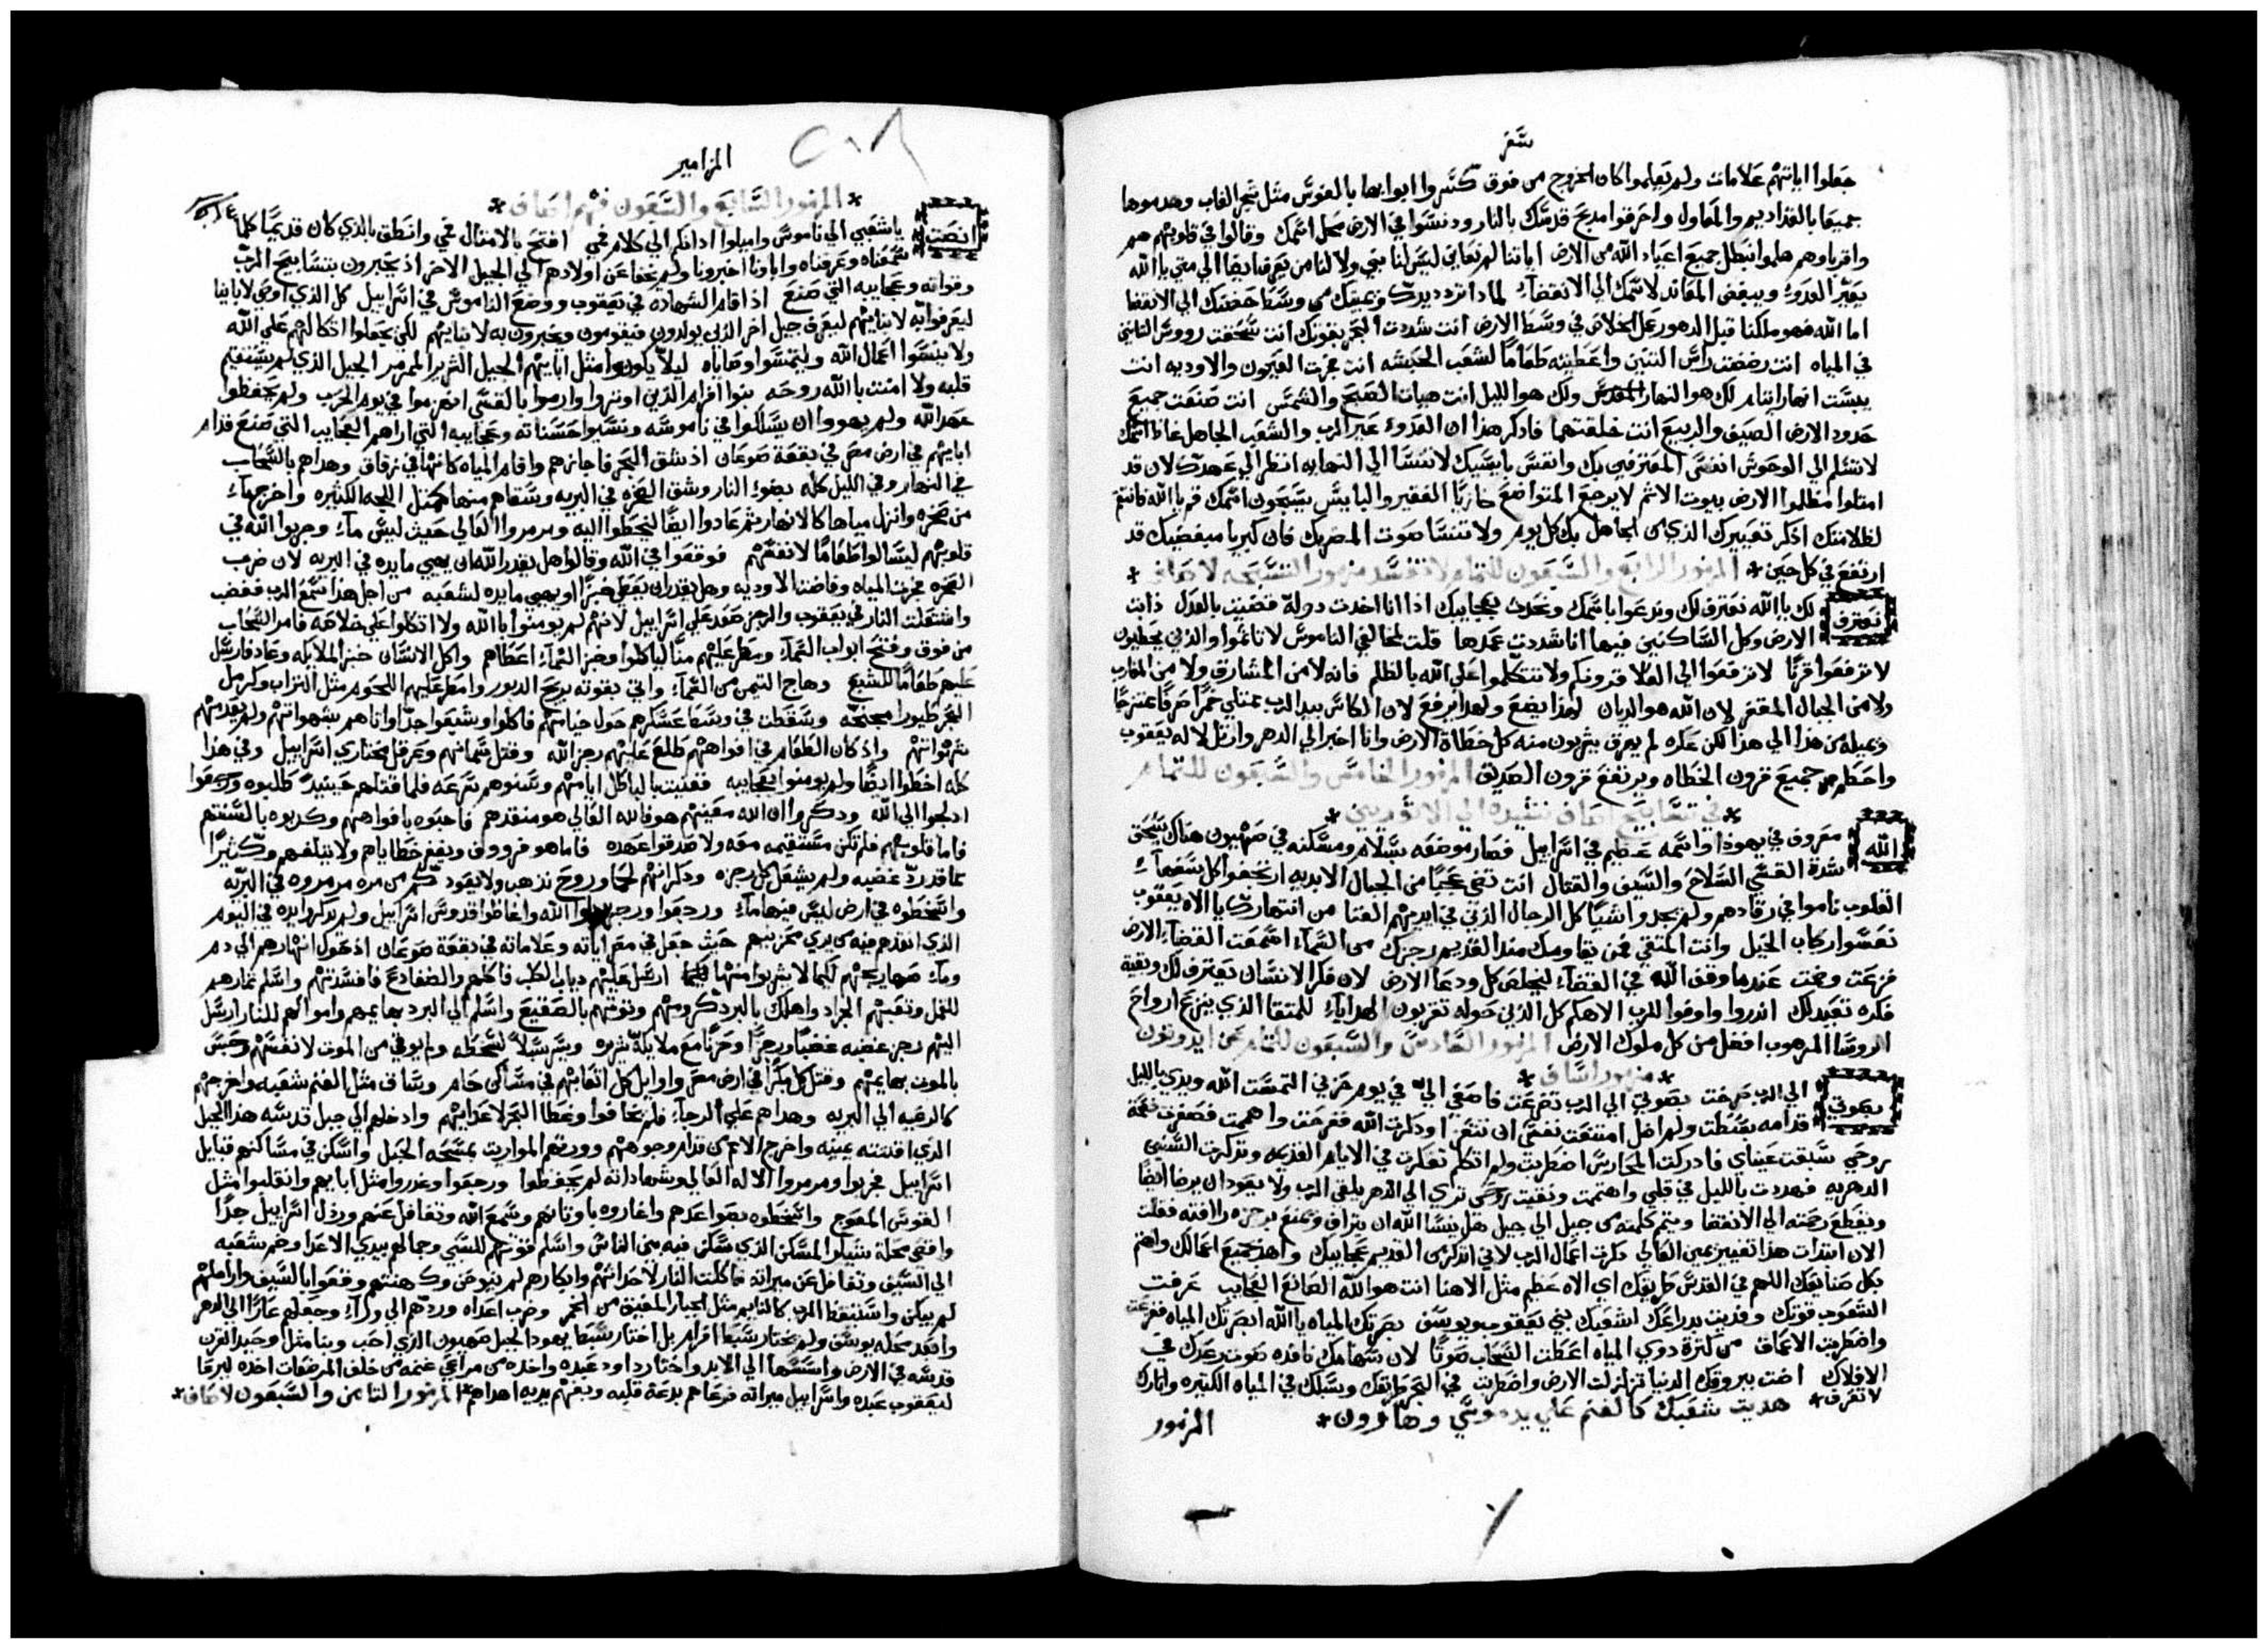 سفر
جعلوا اياتهم علامات ولم يعلموا كان الخروج من فوق كسروا ابوابها بالفوس مثل شجر الغاب وهدموها
جميعا بالقداديم والمعاول واحرقوا مدبح قدسك بالنار ودنسوا في الارض محل اسمك وقالوا في قلوبهم هم
واقرباوهم هلموا نبطل جميع اعياد الله من الارض اياتنا لم نعاين ليس لنا نبي ولا لنا من يعرف ايضا الي متي يا الله
يعير العدو ويبغض المعاند لاسمك الي الانقضاء لمادا ترد يدك ويمينك من وسط حضنك الي الانقضا
اما الله فهو ملكنا قبل الدهور عمل الخلاص في وسط الارض انت شددت البحر بقوتك انت سحقت رووس التنانين
في المياه انت رضضت راس التنين واعطيته طعاما لشعب الحبشه انت فجرت العيون والاوديه انت
يبست انهار ايتام لك هو النهار ولك هو الليل انت هيات الصبح والشمس انت صنعت جميع
حدود الارض الصيف والربيع انت خلقتهما فادكر هذا ان العدو عير الرب والشعب الجاهل اغاظ اسمك
لا تسلم الي الوحوش انفس المعترفين بك وانفس بايسيك لا تنسا الي النهايه انظر الي عهدك لان قد
امتلوا مظلموا الارض بيوت الاثم لا يرجع المتواضع خازيا الفقير والبايس يسبحون اسمك قم يا الله فانتقم
لظلامتك ادكر تعييرك الذي من الجاهل بك كل يوم ولا تنسا صوت المضريك فان كبريا مبغضيك قد
ارتفع في كل حين * المزمور الرابع والسبعون للتمام لا تفسد مزمور التسبحه لاصاف *
نعترف لك يا الله نعترف لك وندعوا باسمك ونحدث بعجايبك اذا انا اخدت دولة قضيت بالعدل دابت
الارض وكل الساكنين فيها انا شددت عمدها قلت لمخالفي الناموس لا تاثموا والذين يخطيون
لا ترفعوا قرنا لا ترفعوا الي العلا قرونكم ولا تتكلموا علي الله بالظلم فانه لا من المشارق ولا من المغارب
ولا من الجبال المقفر لان الله هو الديان لهذا يضع ولهدا يرفع لان الكاس بيد الرب ممتلي خمرا صرفا ممتزجا
ويميله من هذا الي هذا لكن عكره لم يهرق يشربون منه كل خطاة الارض وانا اخبر الي الدهر وارتل لاله يعقوب
واحطم جميع قرون الخطاه ويرتفع قرون الصديق المزمور الخامس والسبعون للتمام
* في تسابيح اصاف نشيده الي الاثوريين *
الله معروف في يهودا واسمه عظيم في اسراييل فصار موضعه بسلام ومسكنه في صهيون هناك يسحق
شدة القسي السلاح والسيف والقتال انت تضي عجبا من الجبال الابديه ارتجفوا كل سفهاء
القلوب ناموا في رقادهم ولم يجدوا شيا كل الرجال الذين في ايديهم الغنا من انتهارك يا الاه يعقوب
نعسوا ركاب الخيل وانت المتقي فمن يقاومك مند القديم رجزك من السماء اسمعت القضاء الارض
فزعت وصمتت عندما وقف الله في القضاء ليخلص كل ودعا الارض لان فكر الانسان يعترف لك وبقية
فكره تعيد لك اندروا واوفوا للرب الاهكم كل الذين حوله تقربون الهدايا للمتقا الذي ينزع ارواح
الروسا المرهوب افضل من كل ملوك الارض المزمور السادس والسبعون للتمام عن ايدوتون
* مزمور اساف *
بصوتي الي الرب صرخت بصوتي الي الرب تضرعت فاصغي الي في يوم حزني التمست الله ويدي بالليل
قدامه بسطت ولم اضل امتنعت نفسي ان تتعزا ودكرت الله ففرحت واهممت فصغرت نفس
روحي سبقت عيناي فادركت المحارس اضطربت ولم اتكلم تفكرت في الايام القديمه وتدكرت السنين
الدهريه فهددت بالليل في قلبي واهتممت وتقيت روحي تري الي الدهر يلقي الرب ولا يعود ان يرضا ايضا
ويقطع رحمته الي الانقضا ويتم كلمته من جيل الي جيل هل ينسا الله ان يتراف ويمنع برجزه رافته فقلت
الان ابتدات هذا تغيير يمين العالي دكرت اعمال الرب لاني اتدكر من القديم عجايبك واهذ جميع اعمالك واهتم
بكل صنايعك اللهم في القدس طريقك اي الاه عظيم مثل الاهنا انت هو الله الصانع العجايب عرفت
الشعوب قوتك وفديت بدراعك شعبك بني يعقوب ويوسف بصرتك المياه يا الله ابصرتك المياه ففزعت
واضطربت الاعماق من كثرة دوي المياه اعطت السحاب صوتا لان سهامك نافده صوت رعدك في
الافلاك اضت ببروقك الدنيا تزلزلت الارض واضطربت في البحر طريقك وسبلك في المياه الكثيره واثارك
لا تعرف * هديت شعبك كالغنم علي يد موسي وهارون *
المزمور
المزامير
* المزمور السابع والسبعون فهم لصاف *
انصت يا شعبي الي ناموسي واميلوا ادانكم الي كلام فمي افتح بالامتال فمي وانطق بالذي كان قديما كلما
سمعناه وعرفناه واباونا اخبرونا ولم يخفا عن اولادهم الي الجيل الاخر اذ يخبرون بتسابيح الرب
وقواته وعجايبه التي صنع اذ اقام الشهاده في يعقوب ووضع الناموس في اسراييل كل الذي اوصي لابايا
ليعرفوا به لابنايهم ليعرف جيل اخر الذين يولدون فيقومون ويخبرون به لابنايهم لكن يجعلوا اتكالهم علي الله
ولا ينسوا اعمال الله ويلتمسوا وصاياه ليلا يكونوا مثل ابايهم الجيل الشرير الممرمر الجيل الذي لم يستقيم
قلبه ولا امنت بالله روحه بنوا افرام الذين اوتروا وارموا بالقسي انهزموا في يوم الحرب ولم يحفظوا
عهد الله ولم يهووا ان يسلكوا في ناموسه ونسيوا حسناته وعجايبه التي اراهم العجايب التي صنع قدام
ابايهم في ارض مصر في بقعة صوعان اذ شق البحر فاجازهم واقام المياه كانها في زقاق وهداهم بالسحاب
في النهار وفي الليل كله بضوء النار وشق الصخره في البريه وسقاهم منها كمثل اللجه الكثيره واخرج ماء
من صخره وانزل مياها كالانهار ثم عادوا ايضا ليخطوا اليه ومرمروا العالي حيث ليس ماء وجربوا الله في
قلوبهم ليسالوا طعاما لانفسهم فوقعوا في الله وقالوا هل يقدر الله ان يهيي مايده في البريه لان ضرب
الصخره فجرت المياه وفاضت الاوديه وهل يقدر ان يعطي خبزا او يهيي مايده لشعبه من اجل هذا سمع الرب فغضب
واشتعلت النار في يعقوب والرجز صعد علي اسراييل لانهم لم يومنوا بالله ولا اتكلوا علي خلاصه فامر السحاب
من فوق وفتح ابواب السماء ومطر عليهم منا لياكلوا وخبز السماء اعطاهم واكل الانسان خبز الملايكه وعاد فارسل
عليهم طعاما للشبع وهاج التيمن من السماء واتي بقوته بريح الدبور وامطر عليهم اللحوم مثل التراب وكرمل
البحر طيورا مجنحه وسقطت في وسط عسكرهم حول خيامهم فاكلوا وشبعوا جدا واتاهم بشهواتهم ولم يعدمهم
شهواتهم واذ كان الطعام في افواههم طلع عليهم رجز الله وقتل سمانهم وعرقل مختاري اسراييل وفي هذا
كله اخطوا ايضا ولم يومنوا بعجايبه ففنيت بالباطل ايامهم وسنوهم بسرعه فلما قتلهم حينيد طلبوه ورجعوا
ادلجوا الي الله ودكروا ان الله معينهم هو فالله العالي هو منقدهم فاحبوه بافواههم وكدبوه بالسنتهم
فاما قلوبهم فلم تكن مستقيمه معه ولا صدقوا عهده فاما هو فرووف ويغفر خطاياهم ولا يتلفهم وكثيرا
ما قد رد غضبه ولم يشعل كل رجزه ودكر انهم لحما وروح تدهب ولا تعود كم من مره مرمروه في البريه
واسخطوه في ارض ليس فيها ماء ورجعوا وجربوا الله واغاظوا قدوس اسراييل ولم يدكروا يده في اليوم
الذي انقدهم فيه من يدي محزنيهم حيث جعل في مصر اياته وعلاماته في بقعة صوعان اذ حول انهارهم الي دم
وماء صهاريجهم لكيما لا يشربوا منها ارسل عليهم دباب الكلب فاكلهم والضفادع فافسدتهم واسلم ثمارهم
للنمل وتعبهم الجراد واهلك بالبرد كرومهم وتوتهم بالصقيع واسلم الي البرد بهايمهم واموالهم للنار ارسل
اليهم رجز غضبه غضبا ورجزا وحزنا مع ملايكة شريره وسير سبيلا لسخطه ولم يوفي من الموت لانفسهم وحبس
بالموت بهايمهم وقتل كل بكرا في ارض مصر واوايل كل اتعابهم في مساكن حام وساق مثل الغنم شعبه واخرجهم
كالرعيه الي البريه وهداهم علي الرجاء فلم يخافوا وغطا البحر لاعدايهم وادخلهم الي جبل قدسه هذا الجبل
الذي اقتنته يمينه واخرج الامم من قدام وجوههم وورثهم المواريت بمسحه الحبل واسكن في مساكنهم قبايل
اسراييل فجربوا ومرمروا الاله العالي وشهاداته لم يحفظوا ورجعوا وغدروا مثل ابايهم وانقلبوا مثل
القوس المعوج واسخطوه بصواعدهم واغاروه باوتانهم وسمع الله وتغافل عنهم وردل اسراييل جدا
واقصي محلة سيلوا المسكن الذي سكن فيه بين الناس واسلم قوتهم للسبي وجمالهم بيدي الاعدا وحصر شعبه
الي السيف وتغافل عن ميراته فاكلت النار لاحداثهم وابكارهم لم ينوحن وكهنتهم وقعوا بالسيف واراملهم
لم يبكين واستيقظ الرب كالنايم مثل الجبار المفيق من الخمر وضرب اعداه وردهم الي وراء وجعلهم عارا الي الدهر
وابعد محله يوسف ولم يختار سبط افرام بل اختار سبط يهودا الجبل صهيون الذي احب وبنا مثل وحيد القرن
قدسه في الارض واسسها الي الابد واختار داود عبده واخده من مراعي غنمه من خلف المرضعات اخده ليرعا
ليعقوب عبده واسراييل ميراته فرعاهم بدعة قلبه وبفهم يديه اهداهم المزمور التامن والسبعون لاصاف *